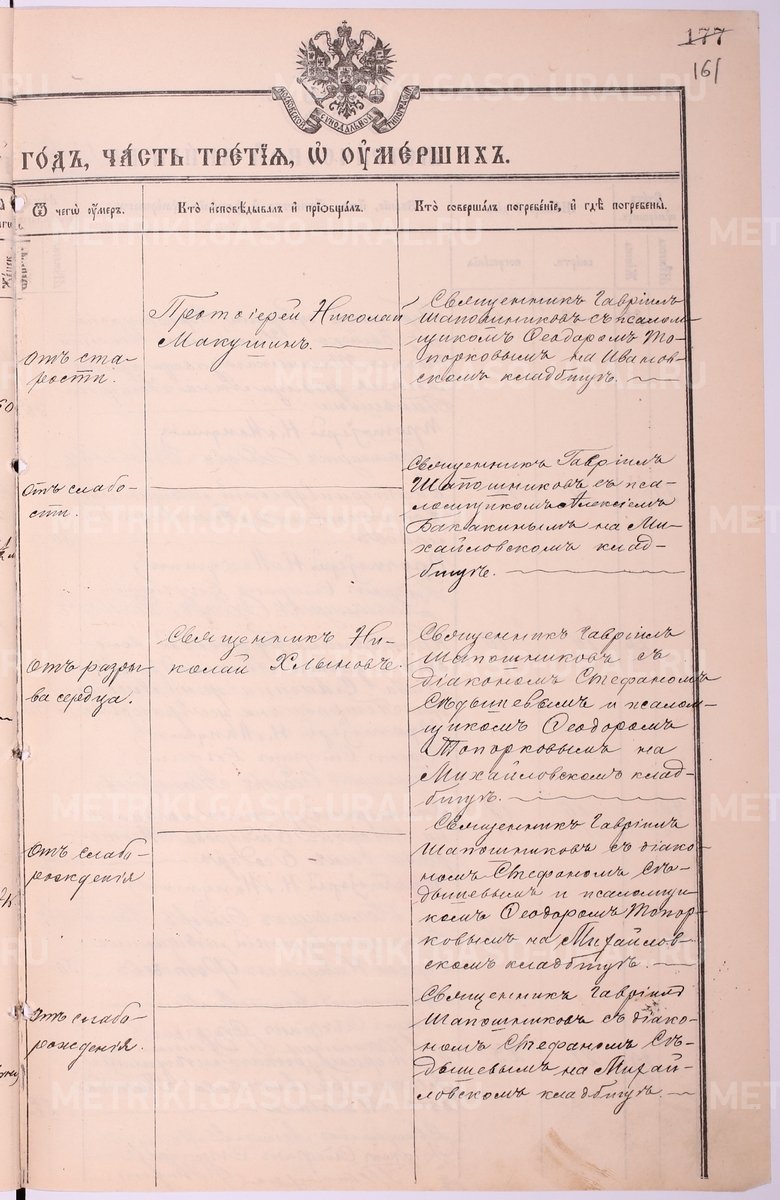 177
161
МОСКОВСКОЙ СѴНОДАЛЬНОЙ ТИПОГРАФІИ
ГО́ДЪ, ЧА́СТЬ ТРЕ́ТІЯ, Ѡ҆ ОУ҆МЕ́РШИХЪ.
Ѿ чегѡ̀ ᲂу҆́меръ.
Кто̀ и҆сповѣ́дывалъ и҆ прїѡбща́лъ.
Кто̀ соверша́лъ погребе́нїе, и҆ гдѣ̀ погребены̀.
отъ ста-
рости.
Протоіерей Николай
Макушинъ.
Священникъ Гавріилъ
Шапошниковъ съ псалом-
щикомъ Ѳеодоромъ То-
порковымъ на Иванов-
скомъ кладбищѣ.
Отъ слабо-
сти.
Священникъ Гавріилъ
Шапошниковъ съ пса-
ломщикомъ Алексіемъ
Бакакинымъ на Ми-
хайловскомъ клад-
бищѣ.
Отъ разры-
ва сердца.
Священникъ Ни-
колай Хлыновъ.
Священникъ Гавріилъ
Шапошниковъ съ
діакономъ Стефаномъ
Сѣдышевымъ и псалом-
щикомъ Ѳеодоромъ
Топорковымъ на
Михайловскомъ клад-
бищѣ.
Отъ слабо-
рожденія
Священникъ Гавріилъ
Шапошниковъ съ діако-
номъ Стефаномъ Сѣ-
дышевымъ и псаломщи-
комъ Ѳеодоромъ Топор-
ковымъ на Михайлов-
скомъ кладбищѣ.
Отъ слабо-
рожденія.
Священникъ Гавріилъ
Шапошниковъ съ діако-
номъ Стефаномъ Сѣ-
дышевымъ на Михай-
ловскомъ кладбищѣ.
METRIKI.GASO-URAL.RU